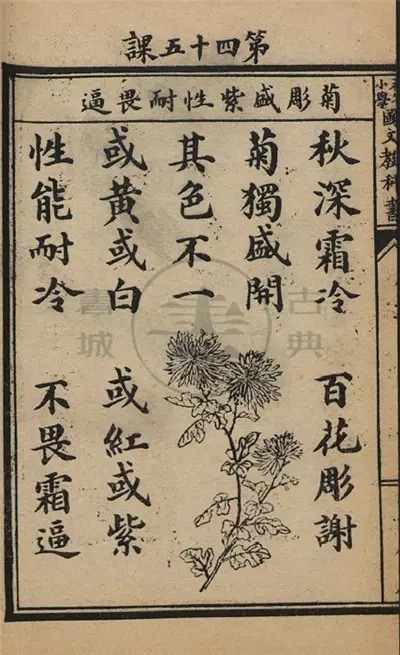 第四十五課
小學國文教科書
菊彫盛紫性耐畏逼
秋深霜冷　百花彫謝
菊獨盛開
其色不一
或黃或白　或紅或紫
性能耐冷　不畏霜逼
古典書城